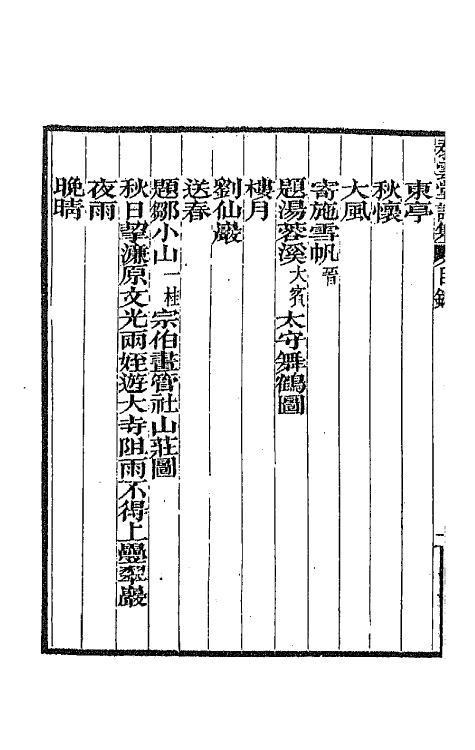 堂詩集 目錄
東亭
秋懷
大風
寄施雪帆晉
題湯蓉溪大賓太守舞鶴圖
樓月
劉仙巖
送春
題鄒小山一桂宗伯畫管社山莊圖
秋日挈濂原文光兩姪遊大寺阻雨不得上疊翠巖
夜雨
晚晴